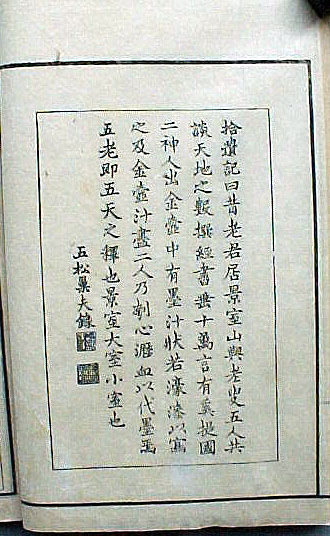 拾遺記曰昔老君居景室山與老叟五人共
談天地之數撰經書垂十萬言有浮提國
二神人出金壺中有墨汁狀若淳漆以寫
之及金壺汁盡二人乃刳心瀝血以代墨焉
五老即五天之精也景室大室小室也
五松